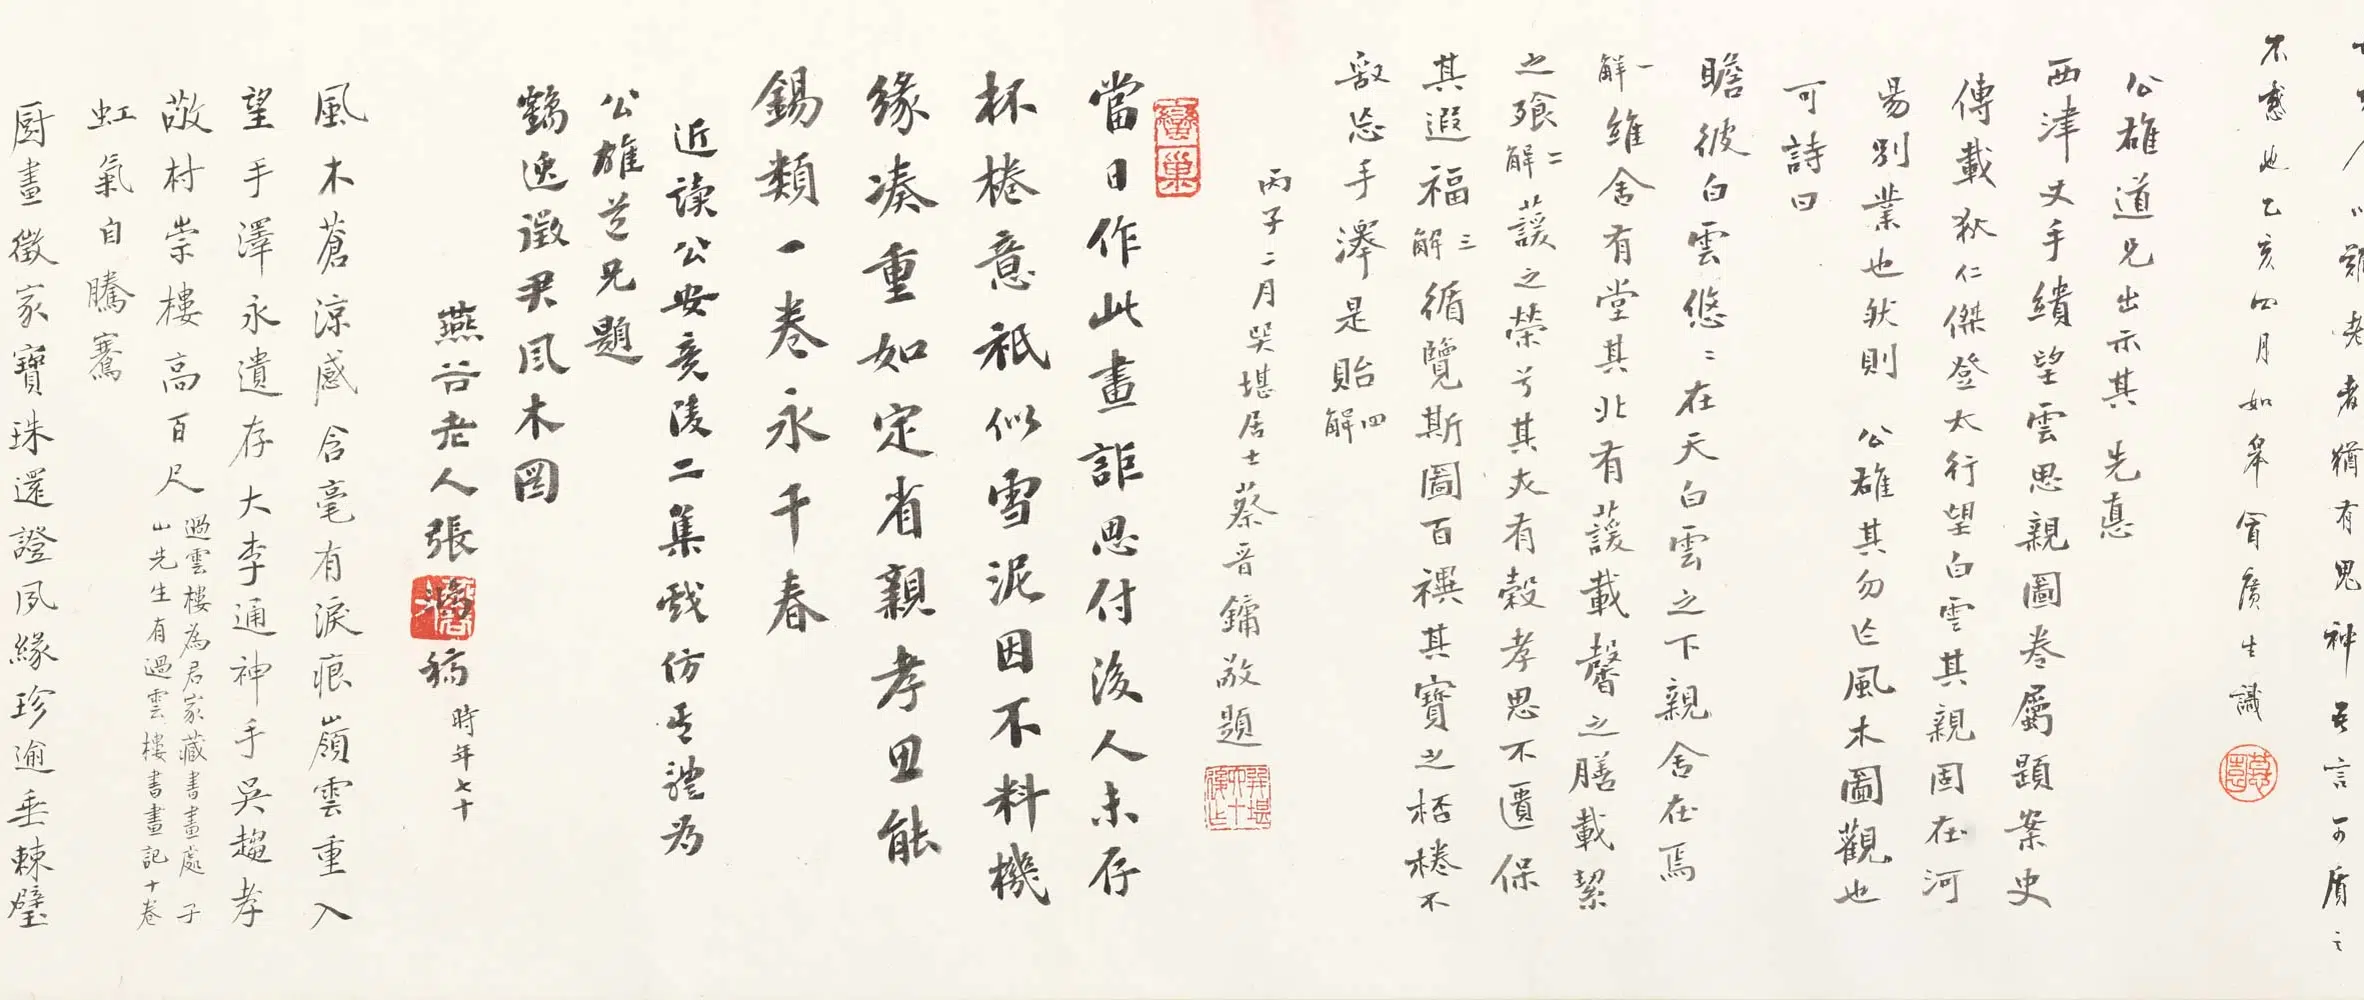 不惑也乙亥四月如皋冒廣生識
公雄道兄出示其先憙
西津丈手繢望雲思親圖卷屬題案史
傳載狄仁傑登太行望白雲其親固在河
昜別業也然則公雄其勿亡風木圖觀也
可詩曰
瞻彼白雲悠悠在天白雲之下親舍在焉
一解維舍有堂其北有蘐載馨之膳載絜
之飧二解蘐之榮兮其夾有穀孝思不匱保
其遐福三解循覽斯圖百禩其寶之桮棬不
敢忘手澤是貽四解
丙子二月哭堪居士蔡晋鏞敬題
當日作此畫詎思付後人未存
杯棬意祇似雪泥因不料機
緣湊重如定省親孝思能
錫類一卷永千春
近读公安竟陵二集戏仿其體为
公雄世兄題
鶴逸徵君風木圖
燕谷老人張鴻稿時年七十
風木蒼涼感含毫有淚痕嶺雲重入
望手澤永遺存大李通神手吳趨孝
敬村崇樓高百尺
過雲樓為君家藏書畫處子
山先生有過雲樓書畫記十卷
虹氣自騰騫
厨畫徵家寶珠還證夙緣珍逾垂棘璧